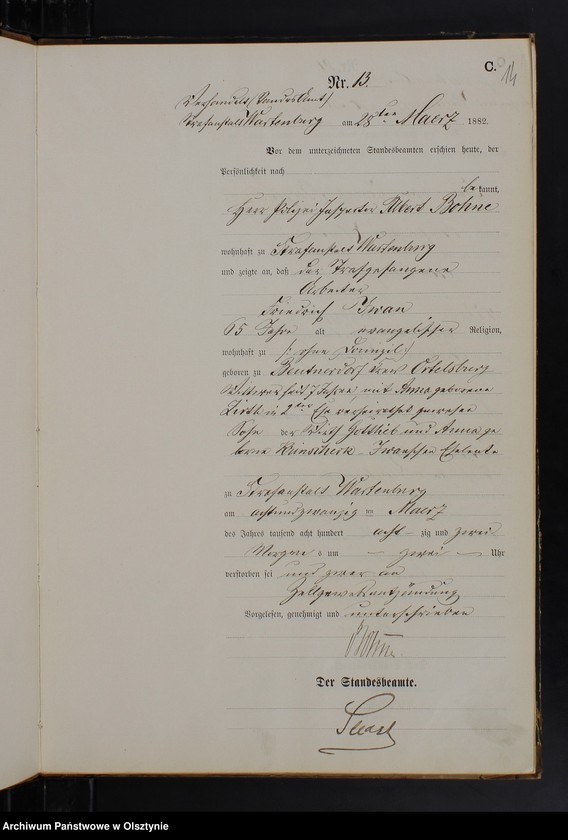 C.
14
Nr. 13.
Strafanstalt Wartenburg am 28ten Maerz 1882.
Vor dem unterzeichneten Standesbeamten erschien heute, der
Persönlichkeit nach
bekannt,
Herr Polizei Inspector Albert Bohne
wohnhaft zu Strafanstalt Wartenburg
und zeigte an, daß der Strafgefangene
Arbeiter
Friedrich Iwan
65 Jahre alt evangelischer Religion,
wohnhaft zu (: ohne Domizil :)
geboren zu Beutnersdorf Kreis Ortelsburg
Wittwer seit 7 Jahren mit Anna geborene
in 2ter Ehe verheirathet gewesen
Sohn der Wirth Gottlieb und Anna ge
borne Iwanschen Eheleute
zu Strafanstalt Wartenburg
am achtundzwanzig ten Maerz
des Jahres tausend acht hundert acht zig und zwei
Morgens um zwei Uhr
verstorben sei und zwar an
Zellgewebsentzündung
Vorgelesen, genehmigt und unterschrieben
Bohne
Der Standesbeamte.
Archiwum Państwowe w Olsztynie